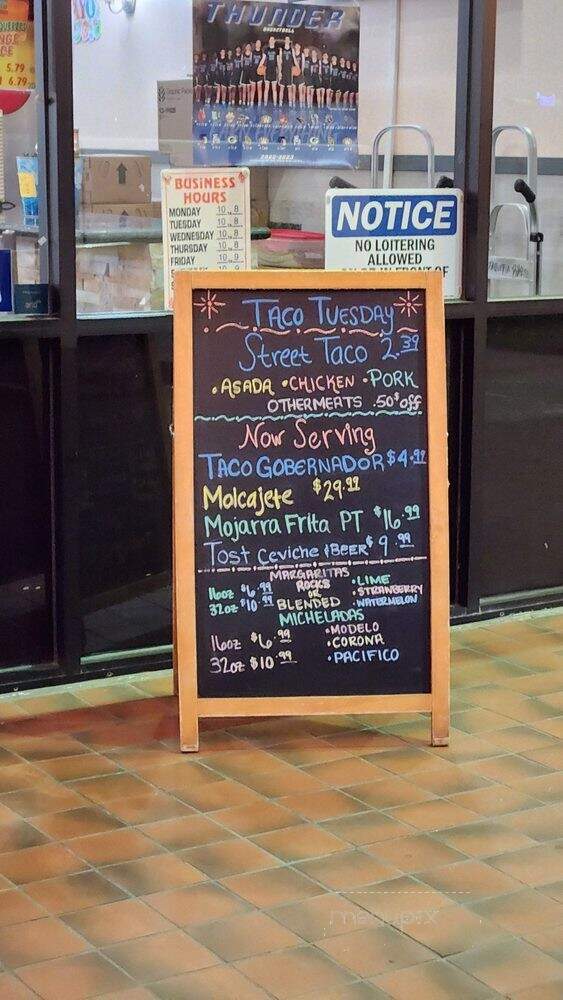 THUNDER
BASKETBALL
2022-2023
5.79
6.79
BUSINESS
HOURS
MONDAY 10 8
TUESDAY 10 8
WEDNESDAY 10 8
THURSDAY 10 8
FRIDAY 10 9
NOTICE
NO LOITERING
ALLOWED
TACO TUESDAY
Street Taco 2.39
• ASADA • CHICKEN • PORK
OTHER MEATS .50¢ off
Now Serving
TACO GOBERNADOR $4.99
Molcajete $29.99
Mojarra Frita PT $16.99
Tost Ceviche & BEER $9.99
MARGARITAS
16oz $6.99 ROCKS • LIME
OR • STRAWBERRY
32oz $10.99 BLENDED • WATERMELON
MICHELADAS
16oz $6.99 • MODELO
• CORONA
32oz $10.99 • PACIFICO
menupix